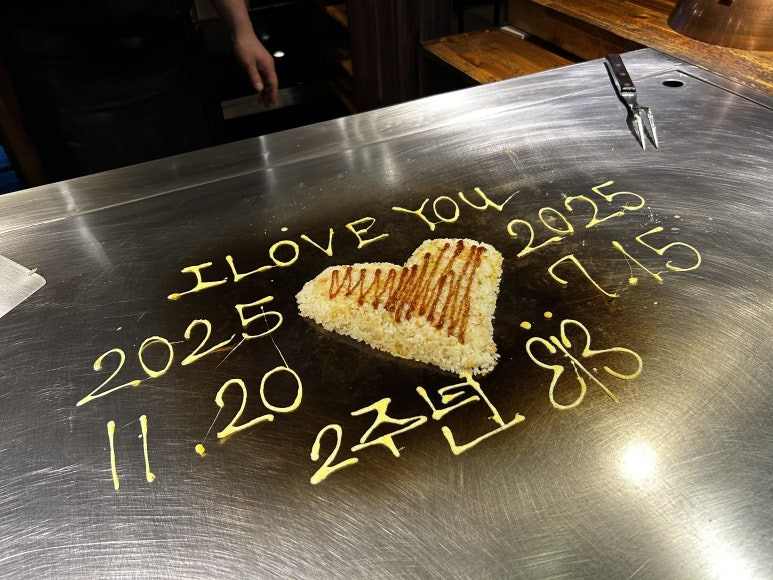 I LOVE YOU
2025
7.15
2025
11.20
2주년